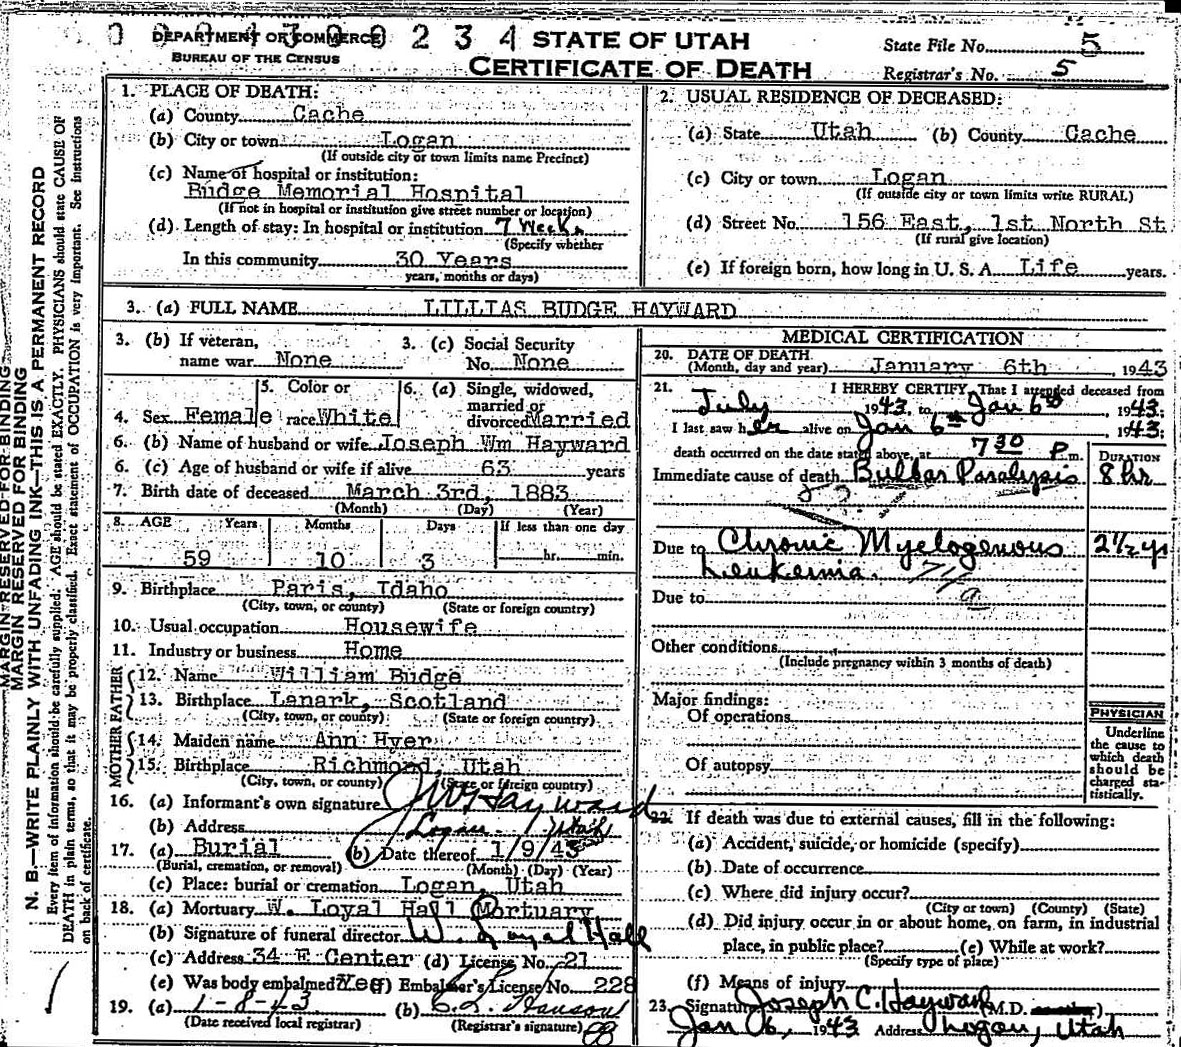 DEPARTMENT OF COMMERCE
BUREAU OF THE CENSUS
0 2 3 4
STATE OF UTAH
CERTIFICATE OF DEATH
State File No. 5
Registrar's No. 5
MARGIN RESERVED FOR BINDING
MARGIN RESERVED FOR BINDING
N. B.—WRITE PLAINLY WITH UNFADING INK—THIS IS A PERMANENT RECORD
Every item of information should be carefully supplied. AGE should be stated EXACTLY. PHYSICIANS should state CAUSE OF
DEATH in plain terms, so that it may be properly classified. Exact statement of OCCUPATION is very important. See instructions
on back of certificate.
1. PLACE OF DEATH:
(a) County Cache
(b) City or town Logan
(If outside city or town limits name Precinct)
(c) Name of hospital or institution:
Budge Memorial Hospital
(If not in hospital or institution give street number or location)
(d) Length of stay: In hospital or institution 7 Weeks
(Specify whether
In this community 30 Years
years, months or days)
2. USUAL RESIDENCE OF DECEASED:
(a) State Utah (b) County Cache
(c) City or town Logan
(If outside city or town limits write RURAL)
(d) Street No. 156 East, 1st North St
(If rural give location)
(e) If foreign born, how long in U. S. A. Life years.
3. (a) FULL NAME LILLIAS BUDGE HAYWARD
3. (b) If veteran, name war None
3. (c) Social Security No. None
4. Sex Female
5. Color or race White
6. (a) Single, widowed, married or divorced Married
6. (b) Name of husband or wife Joseph Wm Hayward
6. (c) Age of husband or wife if alive 63 years
7. Birth date of deceased March 3rd, 1883
(Month) (Day) (Year)
8. AGE Years Months Days If less than one day
59 10 3 hr. min.
9. Birthplace Paris, Idaho
(City, town, or county) (State or foreign country)
10. Usual occupation Housewife
11. Industry or business Home
FATHER
12. Name William Budge
13. Birthplace Lanark, Scotland
(City, town, or county) (State or foreign country)
MOTHER
14. Maiden name Ann Hyer
15. Birthplace Richmond, Utah
(City, town, or county) (State or foreign country)
16. (a) Informant's own signature J W Hayward
(b) Address Logan Utah
17. (a) Burial (b) Date thereof 1/9/43
(Burial, cremation, or removal) (Month) (Day) (Year)
(c) Place: burial or cremation Logan, Utah
18. (a) Mortuary W. Loyal Hall Mortuary
(b) Signature of funeral director W. Loyal Hall
(c) Address 34 E Center (d) License No. 21
(e) Was body embalmed? Yes (f) Embalmer's License No. 228
19. (a) 1-8-43 (b)
(Date received local registrar) (Registrar's signature)
MEDICAL CERTIFICATION
20. DATE OF DEATH
(Month, day and year) January 6th, 1943
21. I HEREBY CERTIFY, That I attended deceased from
July 1943 to Jan 6th, 1943:
I last saw her alive on Jan 6th 1943:
death occurred on the date stated above, at 7 30 P m.
DURATION
Immediate cause of death Bulbar Paralysis 8 hr
Due to Chronic Myelogenous 2 1/2 yr
Leukemia. 74 a
Due to
Other conditions
(Include pregnancy within 3 months of death)
Major findings:
Of operations
Of autopsy
PHYSICIAN
Underline
the cause to
which death
should be
charged sta-
tistically.
22. If death was due to external causes, fill in the following:
(a) Accident, suicide, or homicide (specify)
(b) Date of occurrence
(c) Where did injury occur?
(City or town) (County) (State)
(d) Did injury occur in or about home, on farm, in industrial
place, in public place? (e) While at work?
(Specify type of place)
(f) Means of injury
23. Signature Joseph C. Hayward (M.D. )
Jan 6, 1943 Address Logan, Utah